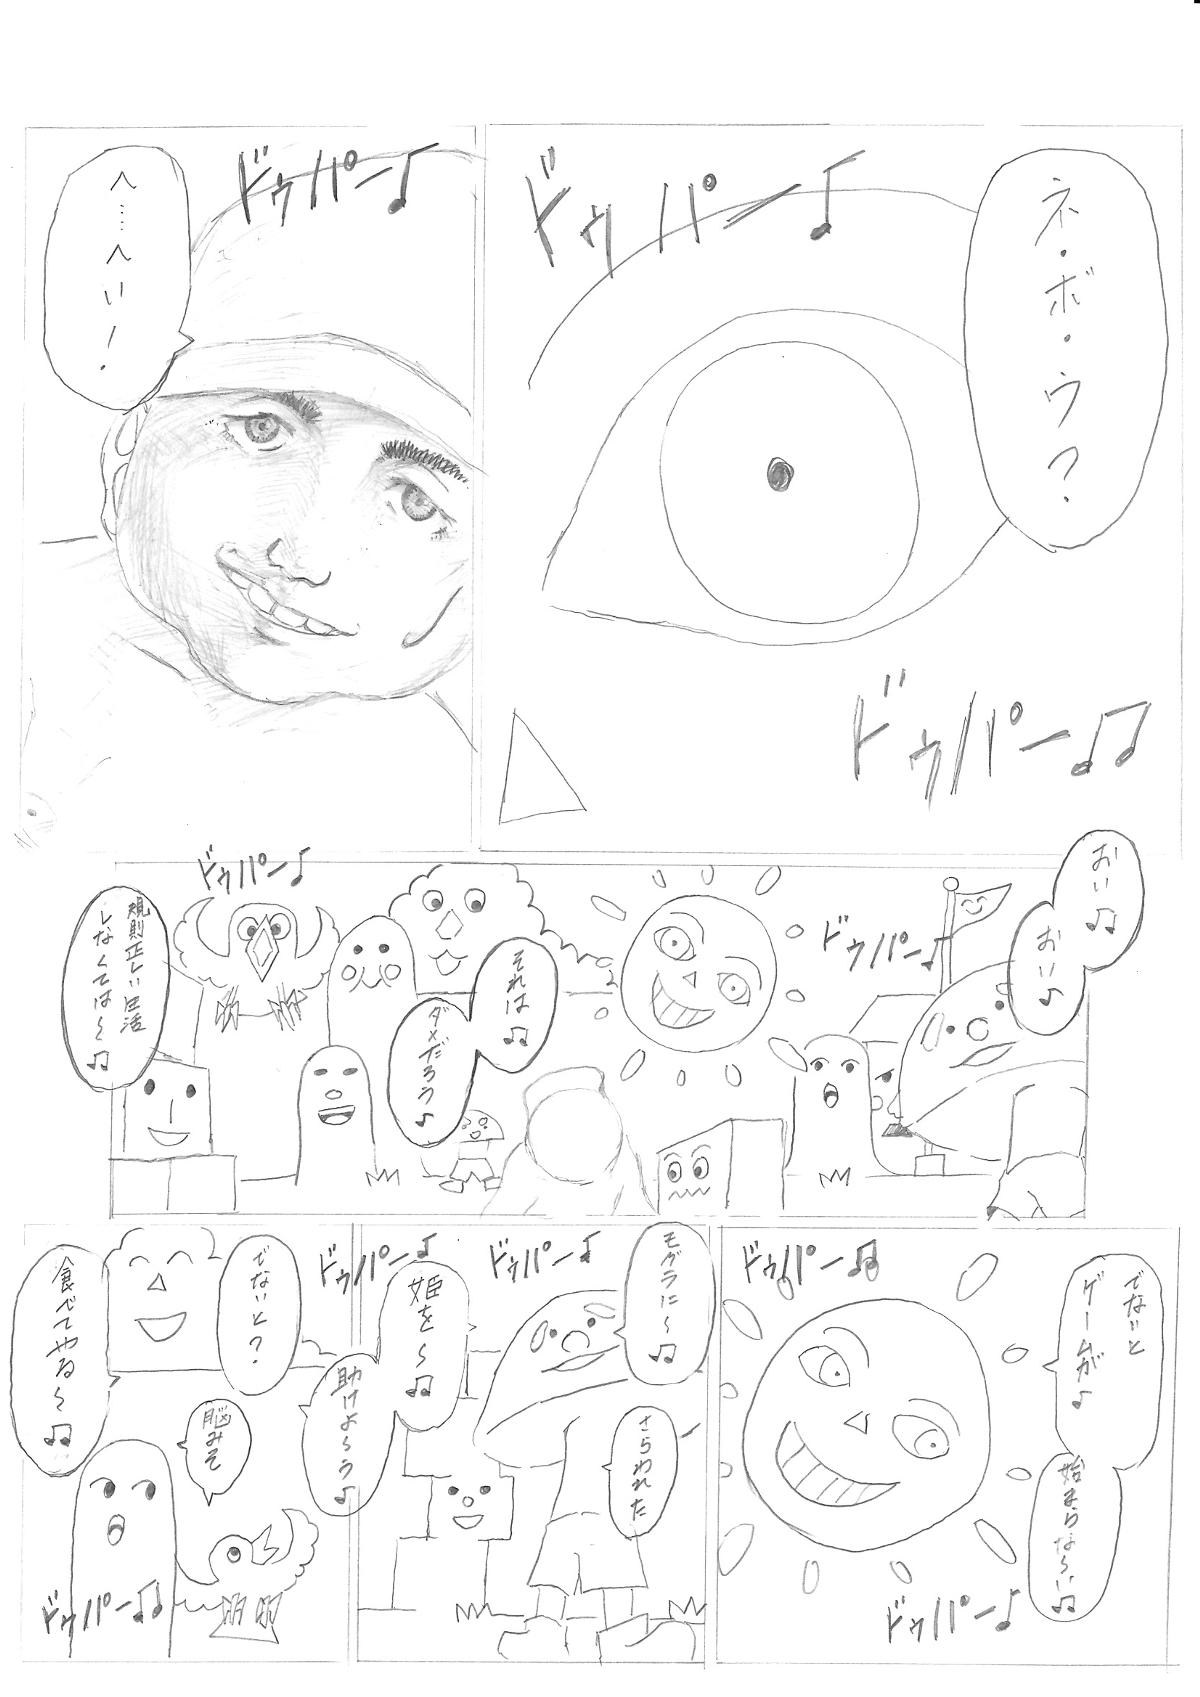 ネ・ボ・ウ？
ドゥパー♪
ドゥパー♫
ドゥパー♫
へ……へい！
おい♫
おい♪
ドゥパー♫
それは♫
ダメだろう♪
ドゥパー♪
規則正しい生活
しなくては〜♫
でないと
ゲームが♪
始まらな〜い♫
ドゥパー♫
ドゥパー♪
モグラに〜♫
さらわれた
ドゥパー♫
姫を〜♫
助けよ〜う♪
ドゥパー♫
でないと？
食べてやる〜♫
脳みそ
ドゥパー♫